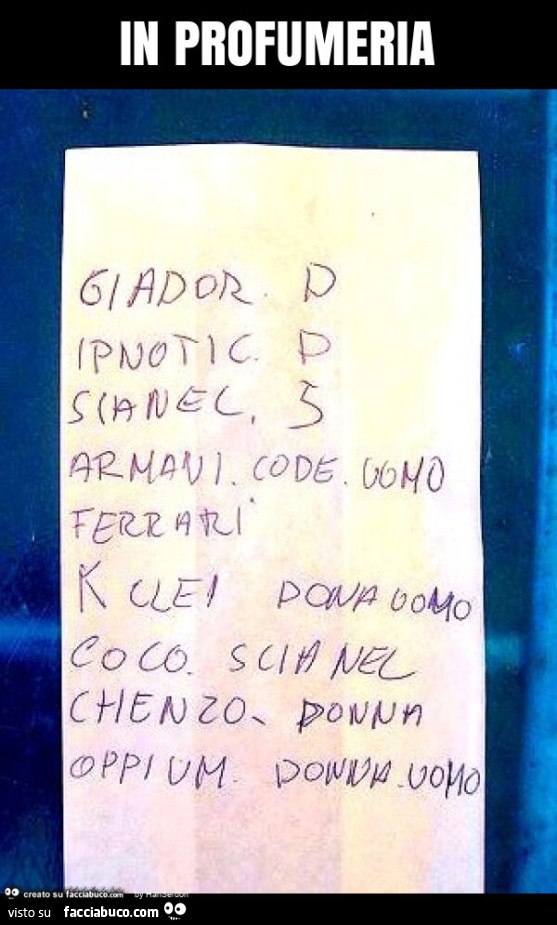 IN PROFUMERIA
GIADOR. D
IPNOTIC. D
SCIANEL. 5
ARMANI. CODE. UOMO
FERRARI
K CLEI DONA UOMO
COCO. SCIANEL
CHENZO. DONNA
OPPIUM. DONNA. UOMO
creato su facciabuco.com by HanSerdon
visto su facciabuco.com